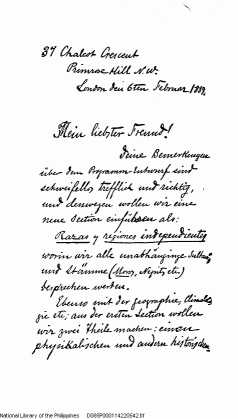 37 Chalcot Crescent
Primrose Hill N.W.
London den 6ten Februar 1889.
Mein liebster Freund!
Deine Bemerkungen
über dem Programm-Entwurf sind
zweifellos trefflich und richtig,
und deswegen wollen wir eine
neue Section einführen als:
Razas y regiones independientes
worin wir alle unabhängige
und Stämme (Moros, Negritos etc.)
besprechen werden.
Ebenso mit der Geographie,
gie etc; aus der ersten Section wollen
wir zwei Theile machen: einen
physikalischen und andern historischen
National Library of the Philippines